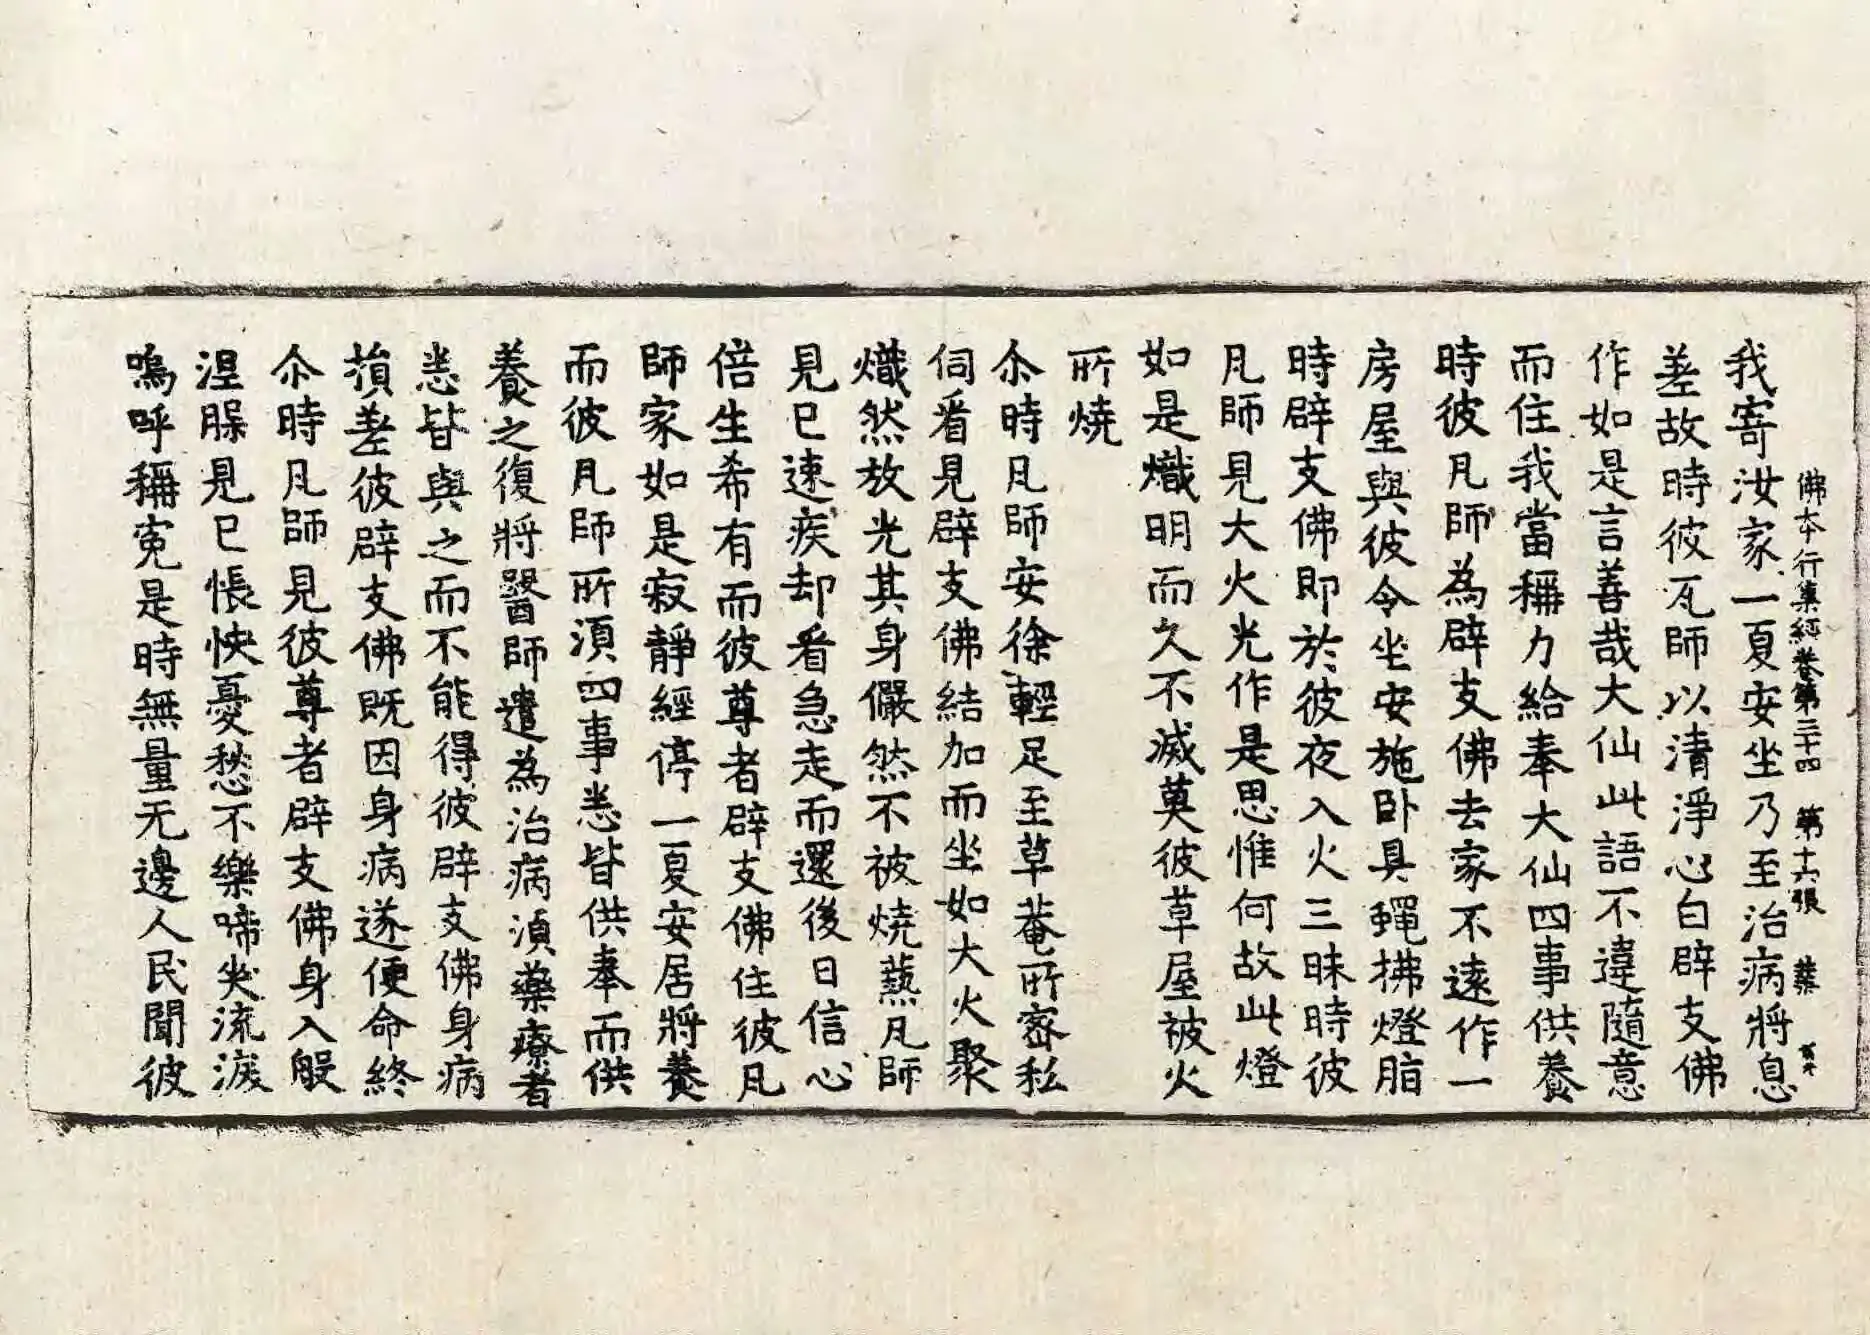 佛本行集經卷第三十四　第十六張
我寄汝家一夏安坐乃至治病將息
差故時彼瓦師以清淨心白辟支佛
作如是言善哉大仙此語不違隨意
而住我當稱力給奉大仙四事供養
時彼凡師為辟支佛去家不遠作一
房屋與彼令坐安施卧具蠅拂燈脂
時辟支佛即於彼夜入火三昧時彼
凡師見大火光作是思惟何故此燈
如是熾明而久不滅莫彼草屋被火
所燒
尒時凡師安徐輕足至草菴所密私
伺看見辟支佛結加而坐如大火聚
熾然放光其身儼然不被燒爇凡師
見已速疾却看急走而還後日信心
倍生希有而彼尊者辟支佛住彼凡
師家如是寂靜經停一夏安居將養
而彼凡師所須四事悉皆供奉而供
養之復將醫師遣為治病須藥療者
悉皆與之而不能得彼辟支佛身病
損差彼辟支佛既因身病遂便命終
尒時凡師見彼尊者辟支佛身入般
涅槃見已悵怏憂愁不樂啼哭流淚
嗚呼稱寃是時無量无邊人民聞彼